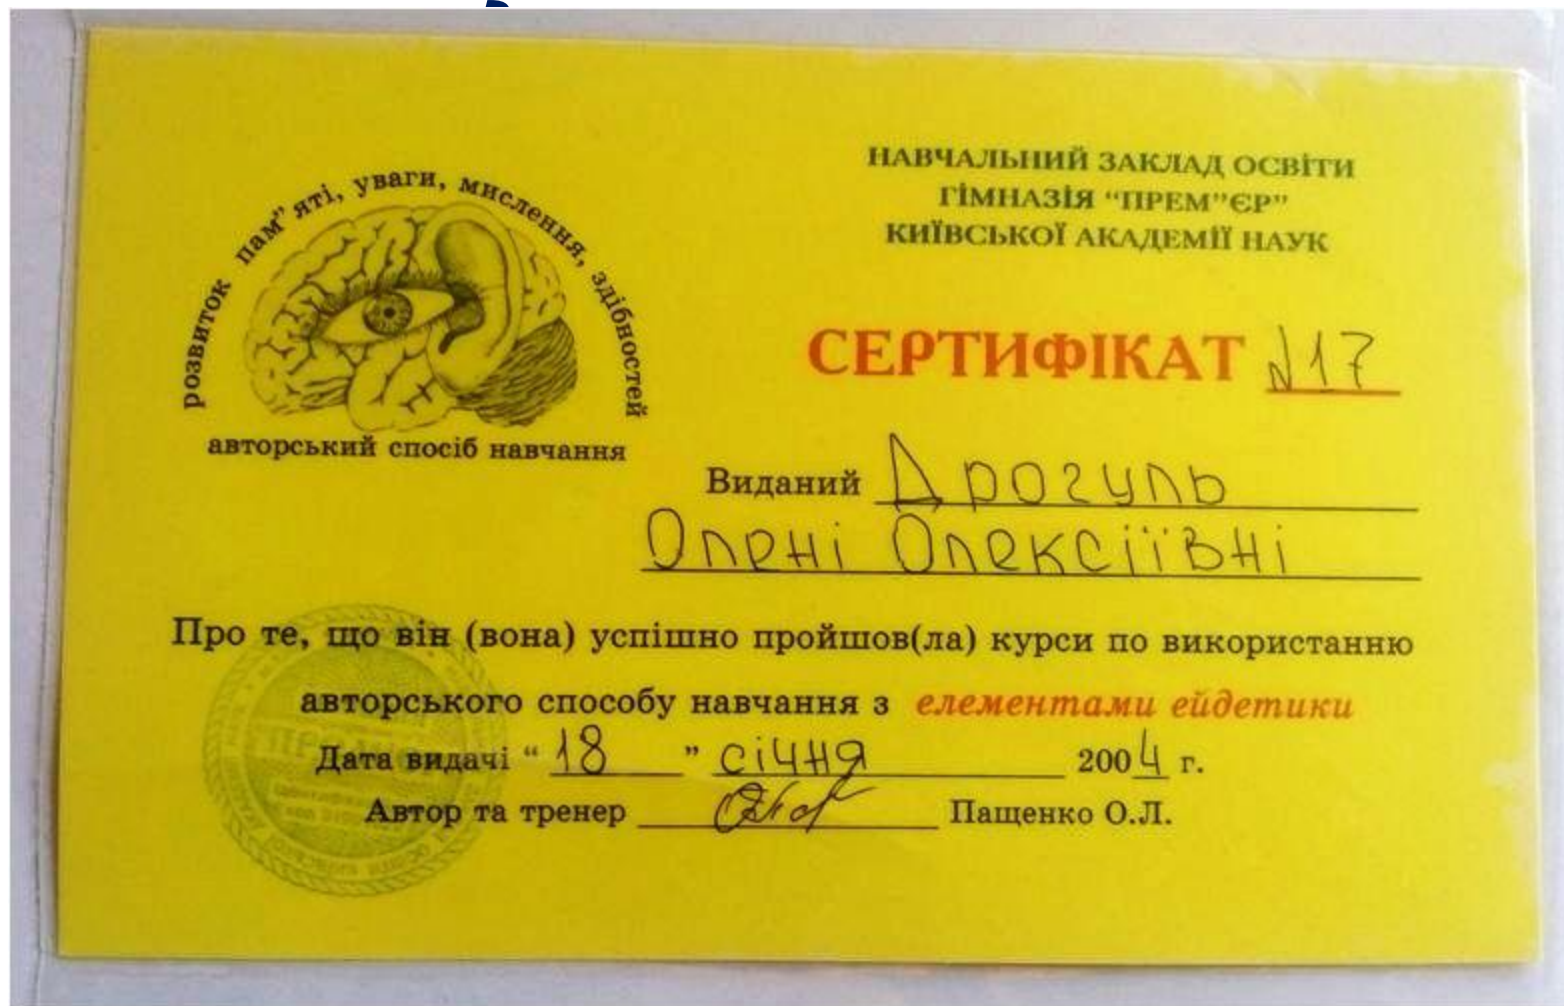 розвиток пам"яті, уваги, мислення, здібностей
авторський спосіб навчання
НАВЧАЛЬНИЙ ЗАКЛАД ОСВІТИ
ГІМНАЗІЯ "ПРЕМ"ЄР"
КИЇВСЬКОЇ АКАДЕМІЇ НАУК
СЕРТИФІКАТ №17
Виданий Дрогуль
Олені Олексіївні
Про те, що він (вона) успішно пройшов(ла) курси по використанню
авторського способу навчання з елементами ейдетики
Дата видачі "18" січня 2004 г.
Автор та тренер Пащенко О.Л.